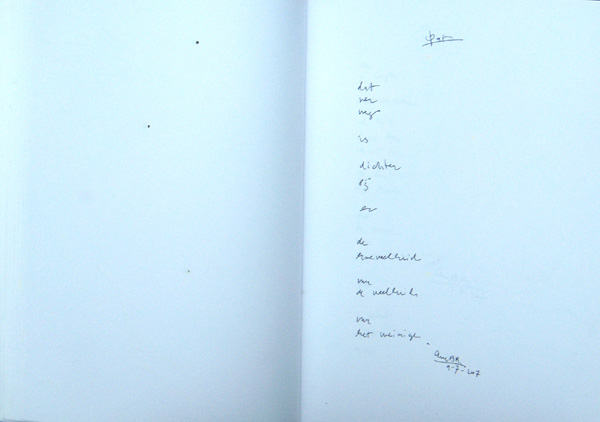 dat
ver
weg
is
dichter
bij
en
de
hoeveelheid
van
de veelheid
van
het weinige.
9-7-207